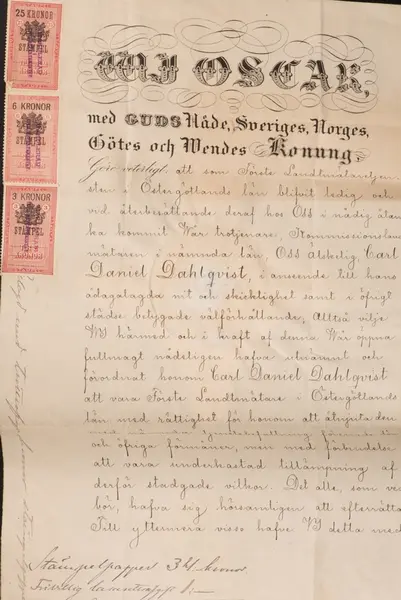 25 KRONOR
STÄMPEL
6 KRONOR
STÄMPEL
3 KRONOR
STÄMPEL
WJ OSCAR,
med GUDS Nåde, Sveriges, Norges,
Götes och Wendes Konung,
Göre veterligt, att som Förste Landtmätaretjen
sten i Östergötlands län blifvit ledig och
vid återbesättande deraf hos Oss i nådig åtan
ka kommit Vår trotjenare, Kommissionslan
mätaren i nämnda län, Oss älskelig Carl
Daniel Dahlqvist, i anseende till hans
ådagalagda nit och skicklighet samt i öfrigt
städse betygade välförhållande; Alltså vilje
VJ härmed och i kraft af denna Vår öppna
fullmagt nådeligen hafva utnämnt och
förordnat honom Carl Daniel Dahlqvist
att vara Förste Landtmätare i Östergötlands
län med rättighet för honom att åtnjuta den
med
och öfriga förmåner, men med förbindelse
att vara underkastad tillämpning af
derför stadgade vilkor. Det alle, som ve
bör, hafva sig hörsamligen att efterrätta
Till yttermera visso hafve VJ detta med
Stämpelpapper 34 kronor